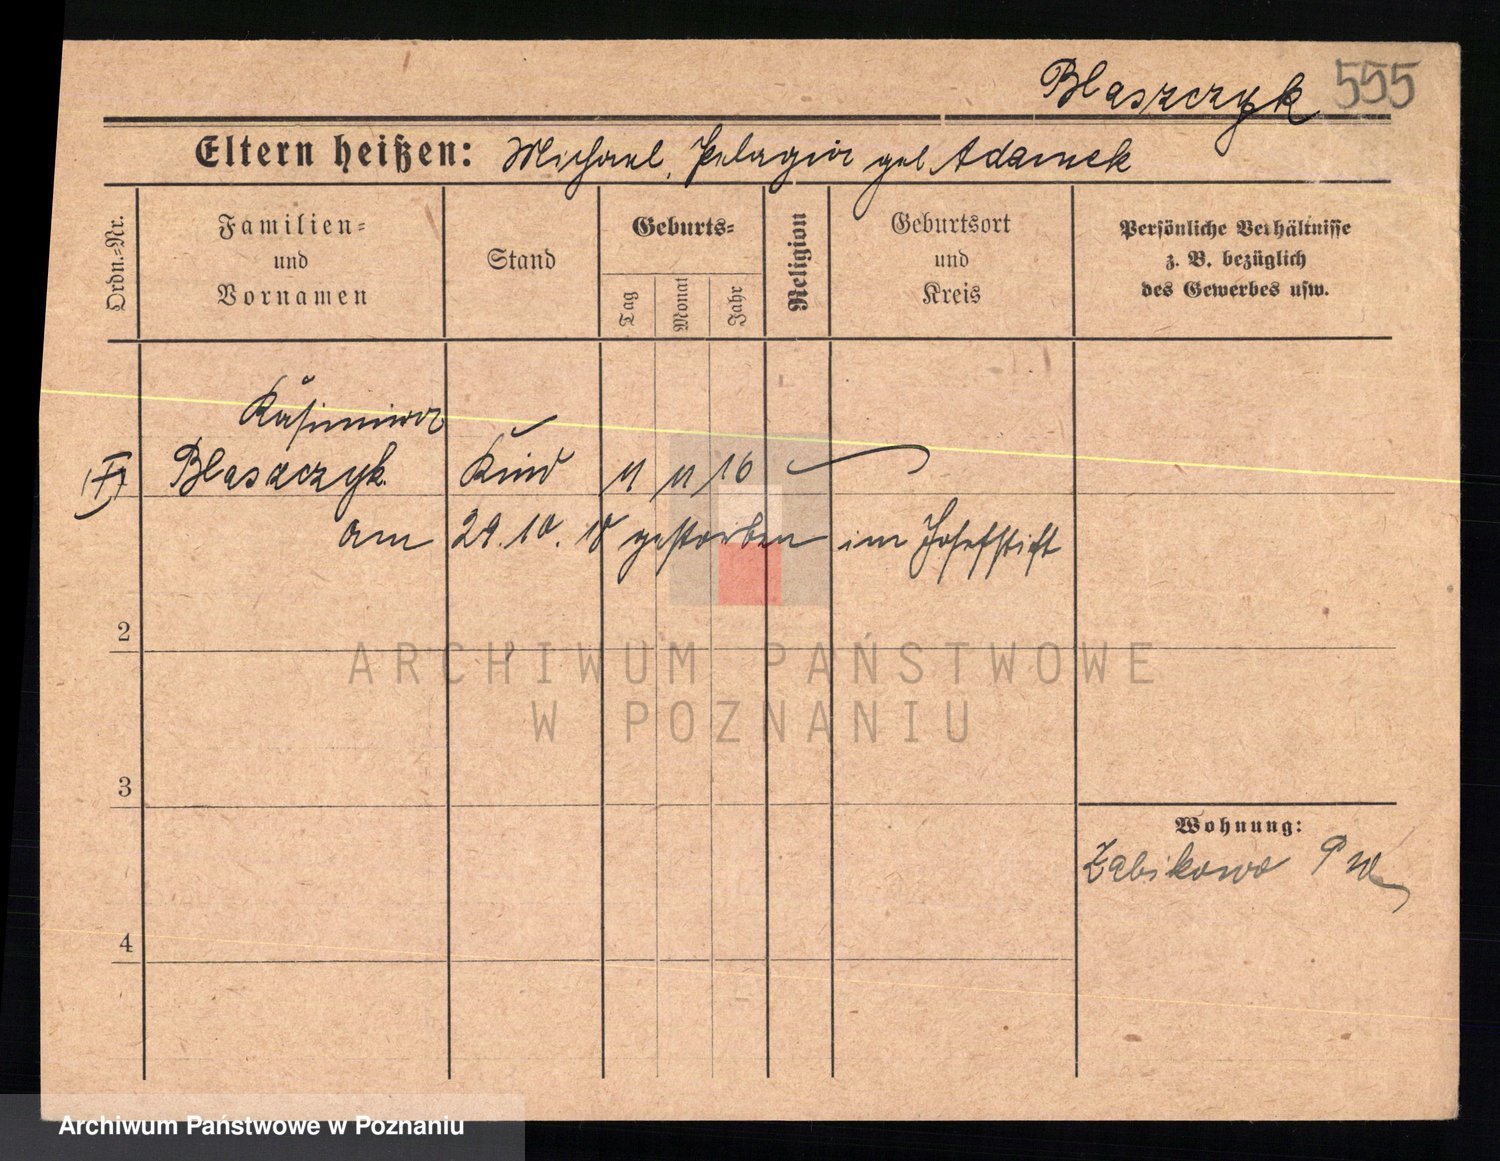 Blaszczyk 555
Eltern heißen: Michael, Pelagia geb. Adamek
Ordn.-Nr.
Familien-
und
Vornamen
Stand
Geburts-
Tag
Monat
Jahr
Religion
Geburtsort
und
Kreis
Persönliche Verhältnisse
z. B. bezüglich
des Gewerbes usw.
Kasimira
Blaszczyk Kind 11 11 16
am 29.10.18 gestorben im Josefstift
2
3
4
Wohnung:
Zabikowo P W
ARCHIWUM PAŃSTWOWE
W POZNANIU
Archiwum Państwowe w Poznaniu